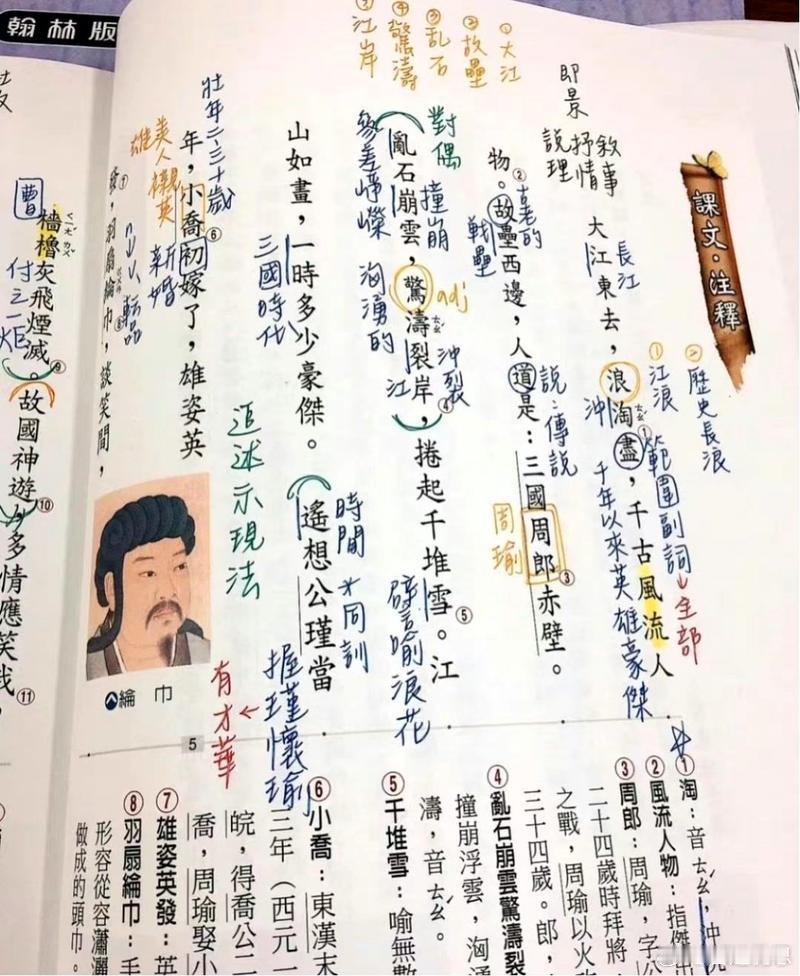 翰林版
課文‧注釋
大江東去，浪淘盡，千古風流人
物。故壘西邊，人道是：三國周郎赤壁。
亂石崩雲，驚濤裂岸，捲起千堆雪。江
山如畫，一時多少豪傑。遙想公瑾當
年，小喬初嫁了，雄姿英
發，羽扇綸巾，談笑間，
檣櫓灰飛煙滅。故國神遊，多情應笑我，
綸巾
5
①大江
②故壘
③亂石
④驚濤
江岸
即景
敘事
抒情
說理
長江
①江浪
②歷史長浪
沖
範圍副詞→全部
千年以來英雄豪傑
老的
戰壘
說：傳說
周瑜
對偶
撞崩
參差崢嶸
adj
洶湧的
沖裂
江
譬喻浪花
三國時代
時間
握瑾懷瑜
有才華
追述示現法
壯年二、三十歲
美人襯英雄
新婚
曹
付之一炬
①淘：音ㄊㄠˊ，沖
②風流人物：指傑
③周郎：周瑜，字
二十四歲時拜將
之戰，周瑜以火攻
三十四歲。郎，
④亂石崩雲驚濤裂
撞崩浮雲，洶湧
濤，音ㄊㄠˊ。
⑤千堆雪：喻無數
⑥小喬：東漢末
三年（西元一
皖，得喬公二
喬，周瑜娶小
⑦雄姿英發：英
⑧羽扇綸巾：手
形容從容瀟灑
做成的頭巾。